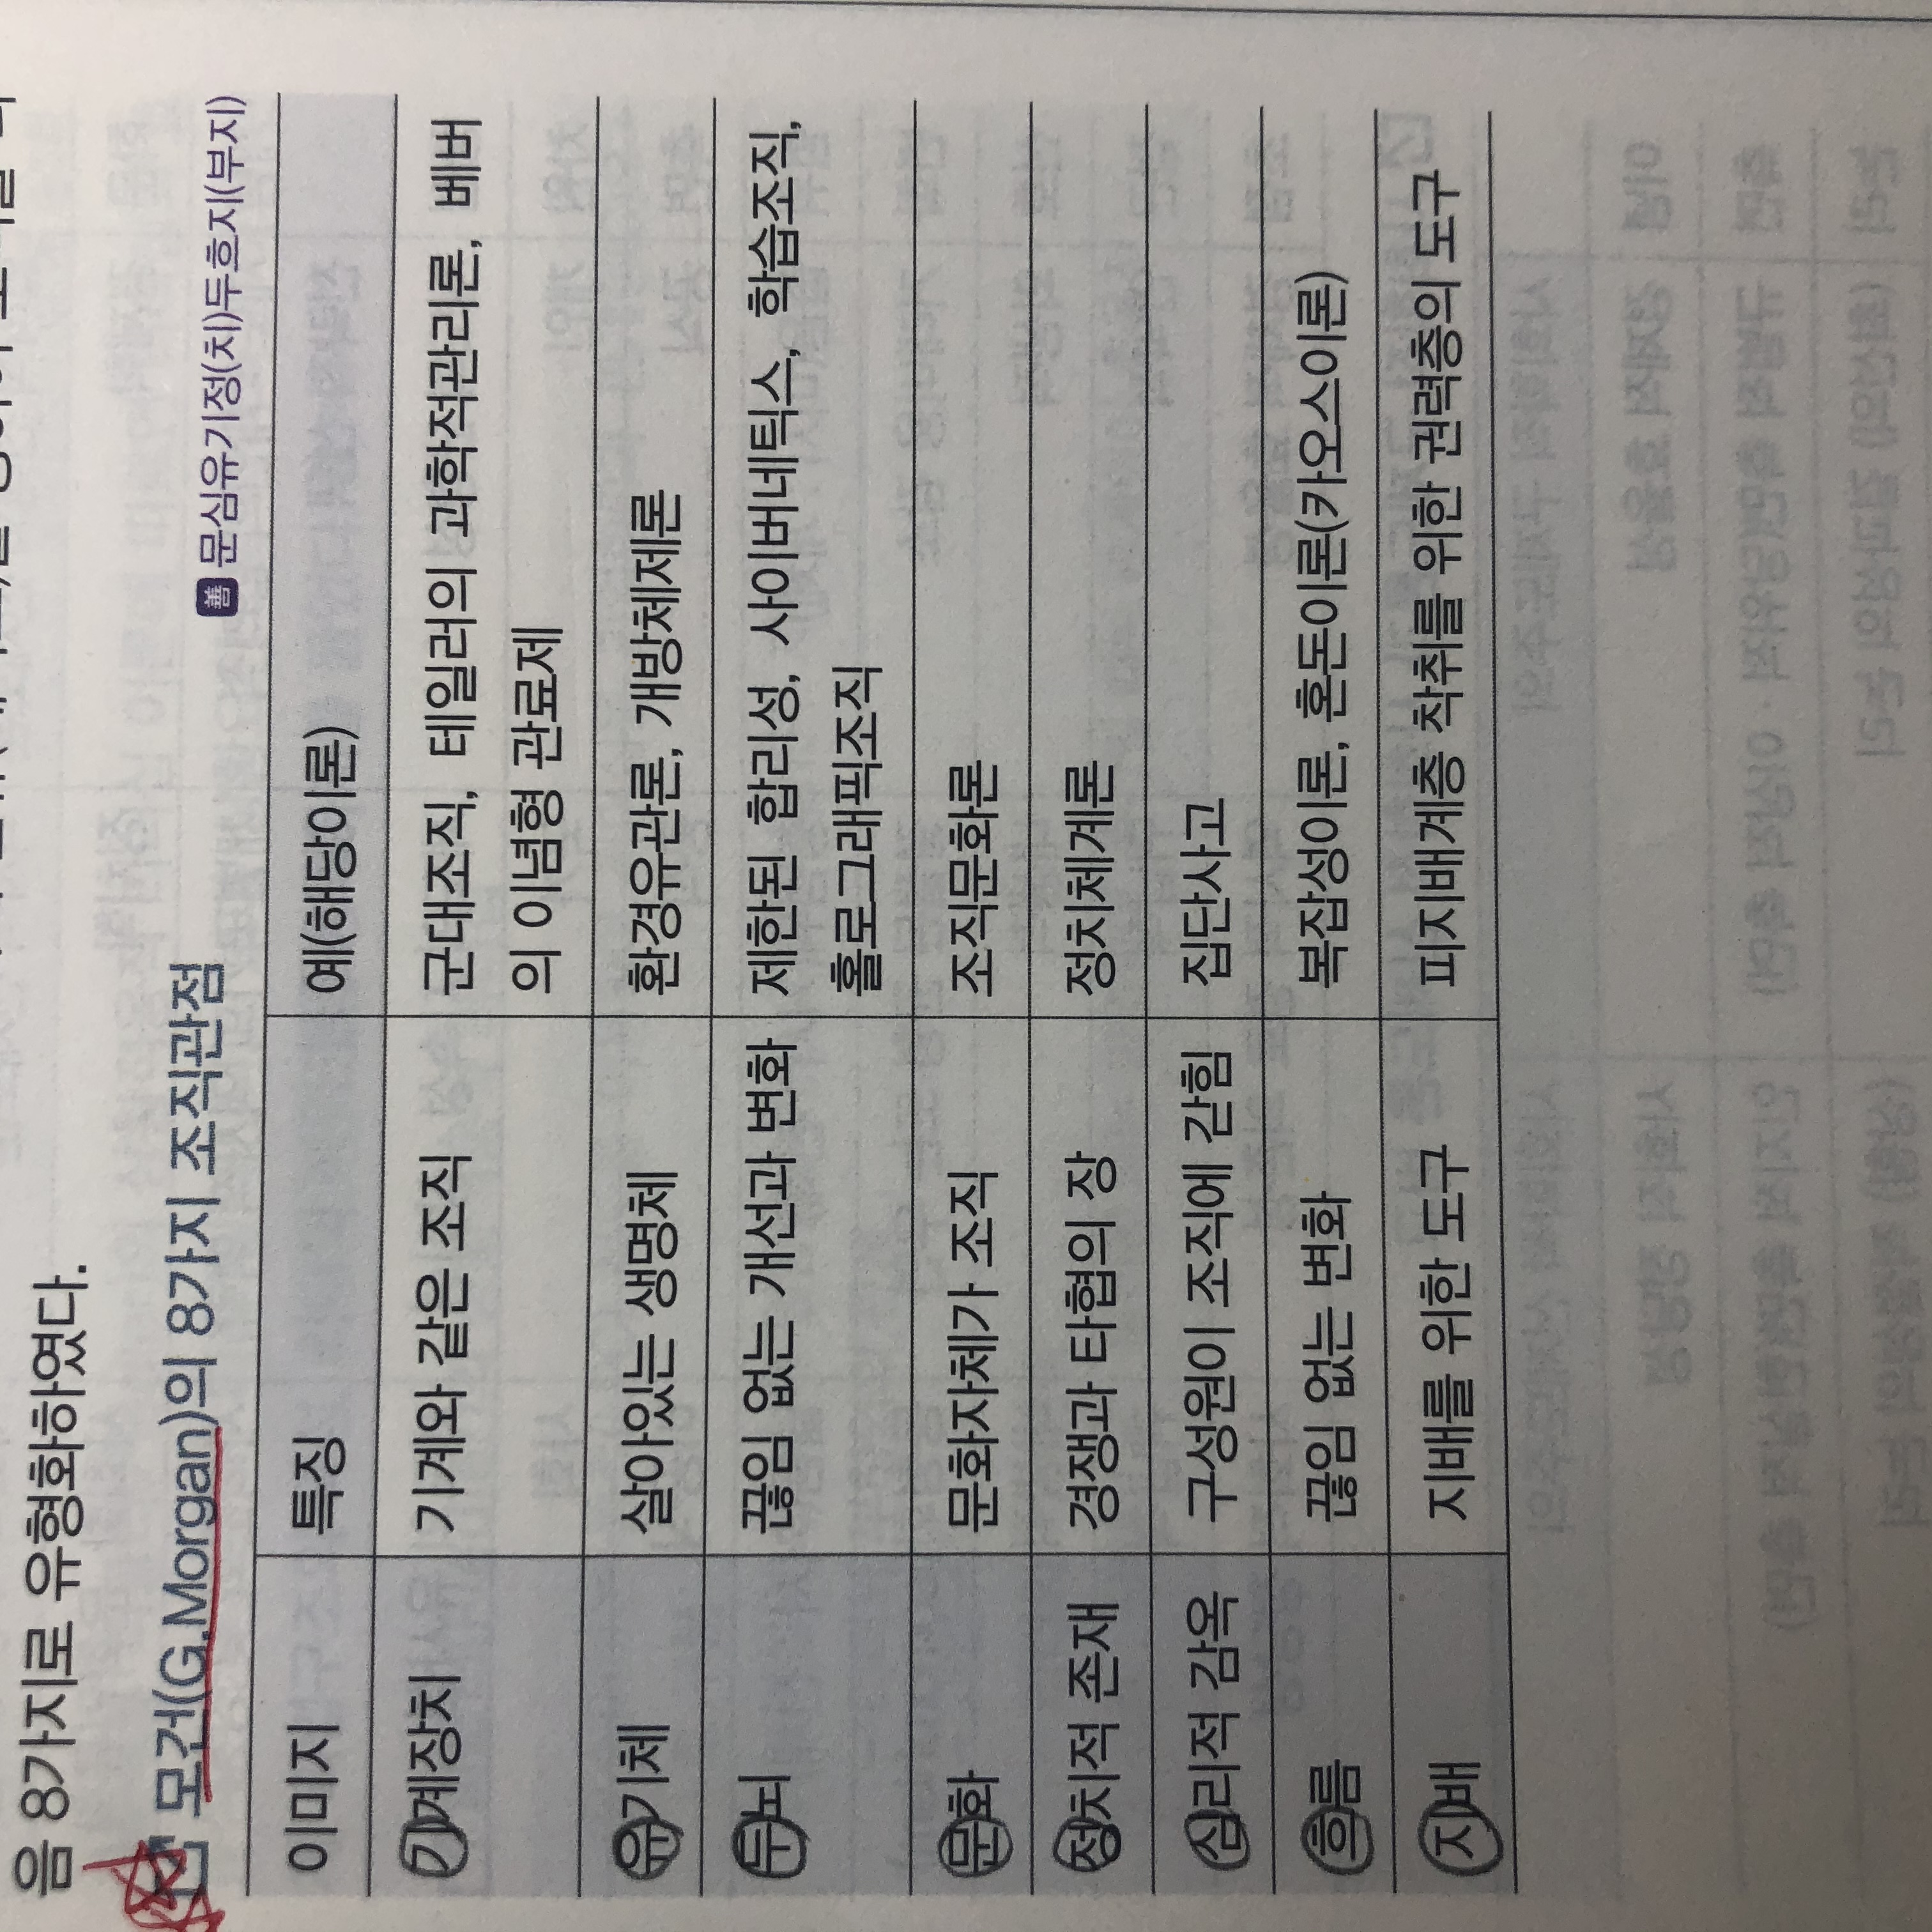 음 8가지로 유형화하였다.
모건(G.Morgan)의 8가지 조직관점
善 문심유기정(치)두흐지(부지)
이미지 특징 예(해당이론)
기계장치 기계와 같은 조직 군대조직, 테일러의 과학적관리론, 베버
의 이념형 관료제
유기체 살아있는 생명체 환경유관론, 개방체제론
두뇌 끊임 없는 개선과 변화 제한된 합리성, 사이버네틱스, 학습조직,
홀로그래픽조직
문화 문화자체가 조직 조직문화론
정치적 존재 경쟁과 타협의 장 정치체계론
심리적 감옥 구성원이 조직에 갇힘 집단사고
흐름 끊임 없는 변화 복잡성이론, 혼돈이론(카오스이론)
지배 지배를 위한 도구 피지배계층 착취를 위한 권력층의 도구